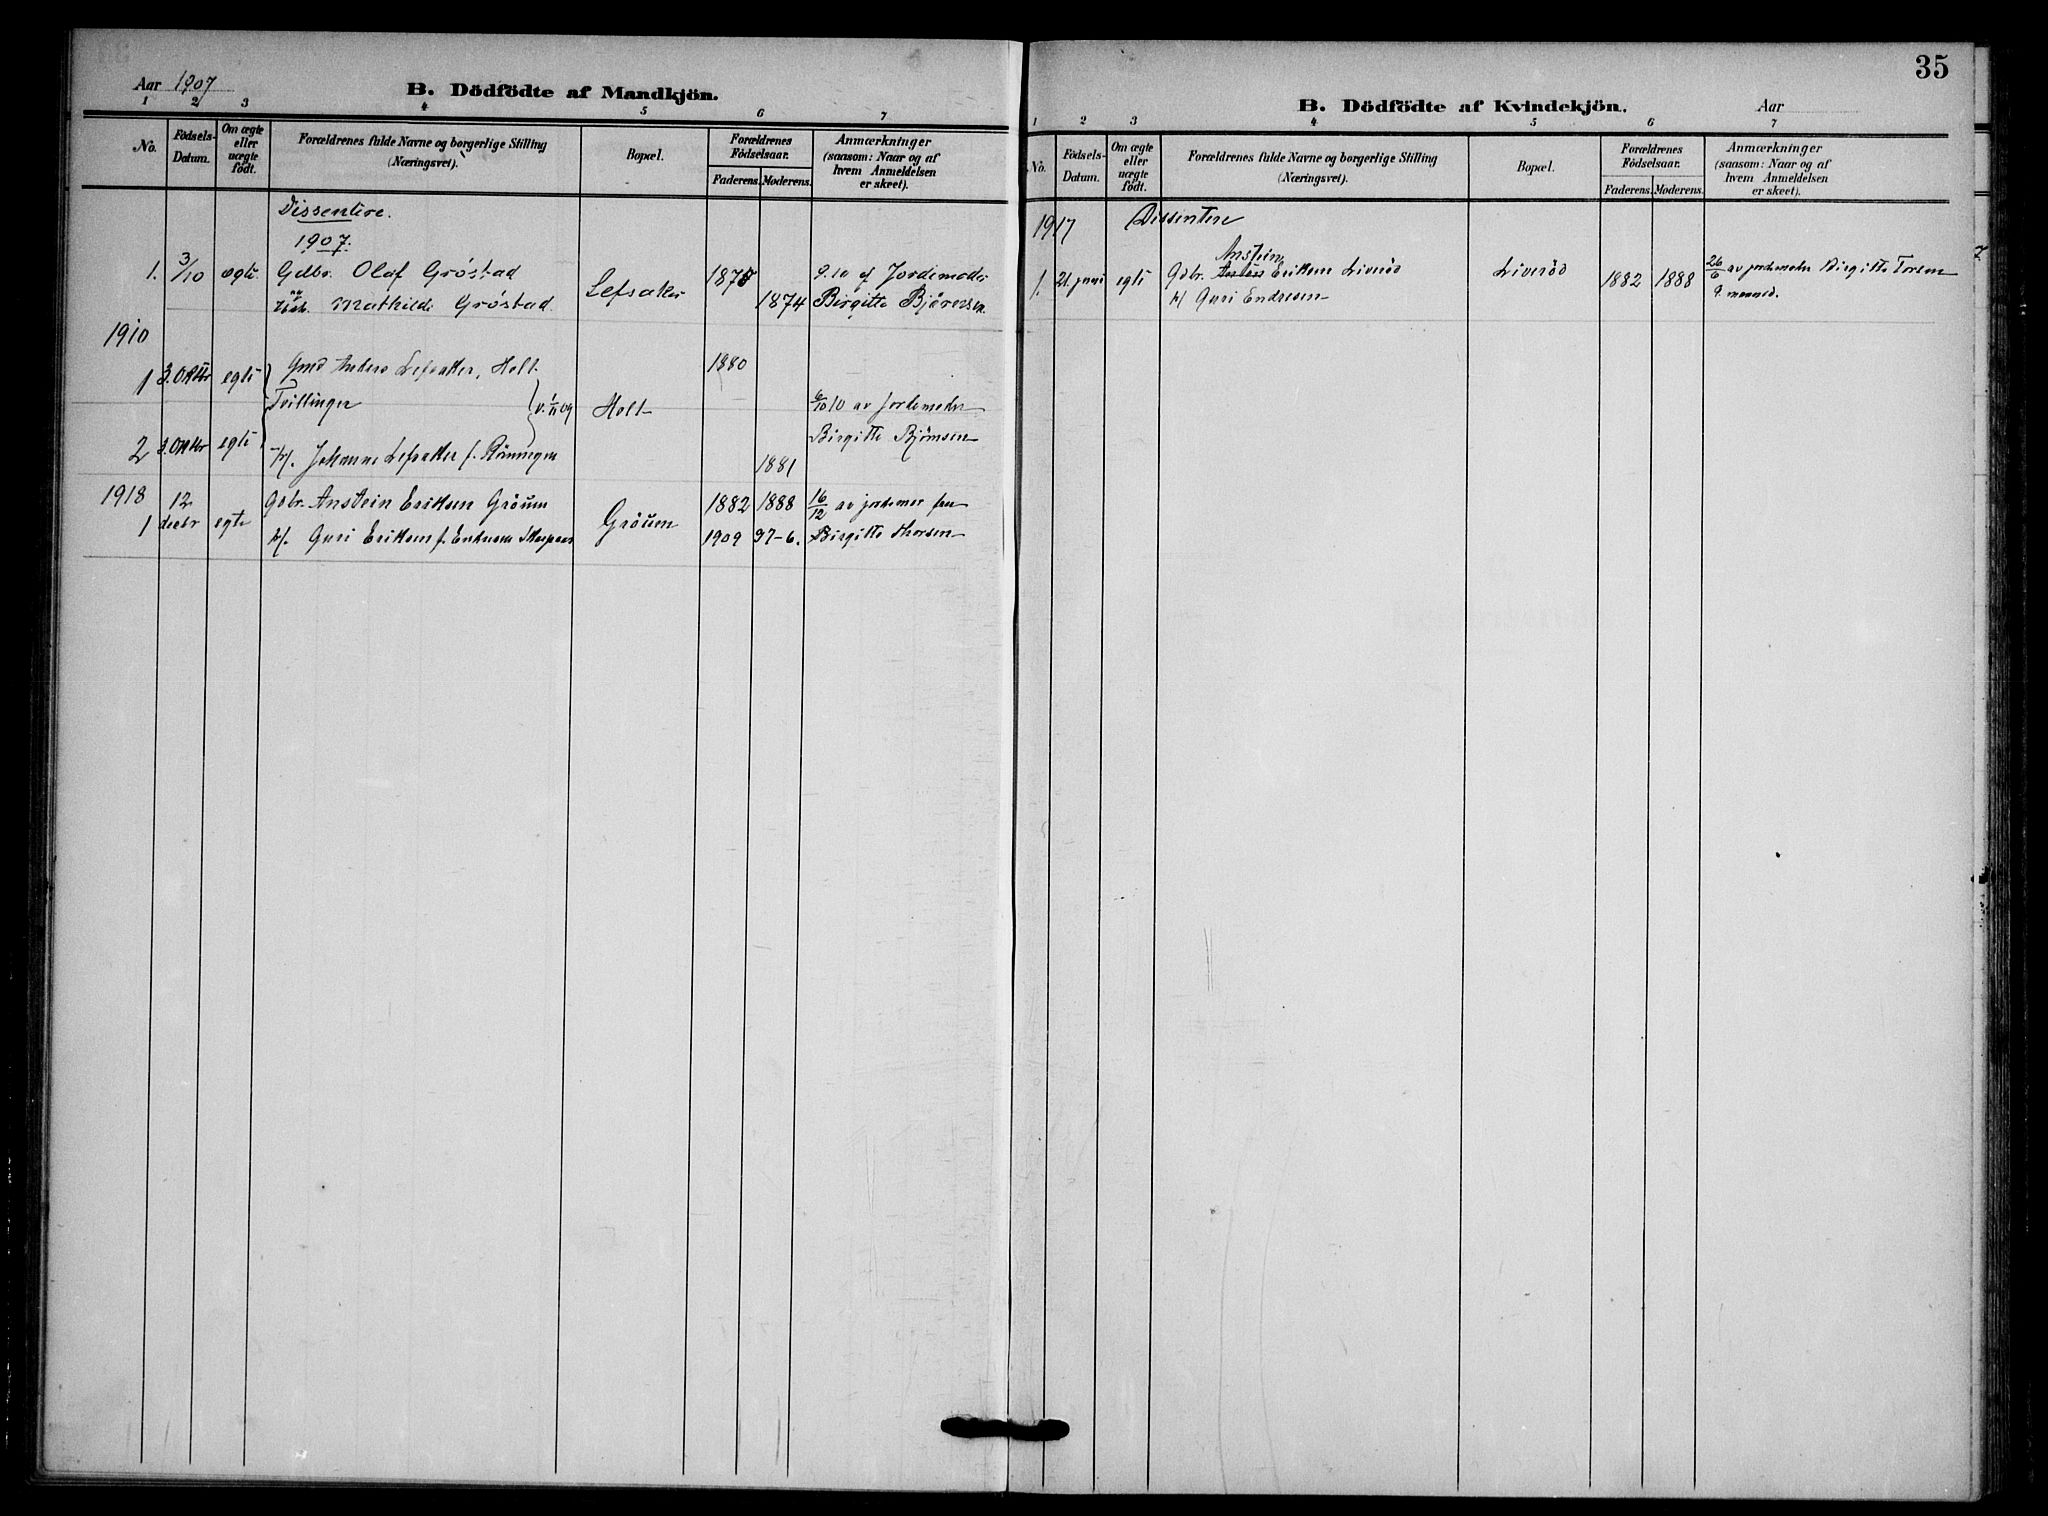 Aar 1907
B. Dödfödte af Mandkjön.
1 2 3 4 5 6 7
No.
Födsels-Datum.
Om ægte eller uægte födt.
Forældrenes fulde Navne og borgerlige Stilling
(Næringsvei).
Bopæl.
Forældrenes Födselsaar.
Faderens. Moderens.
Anmærkninger
(saasom: Naar og af
hvem Anmeldelsen
er skeet).
Dissentere.
1907.
1. 3/10 ægte. Gdbr. Olaf Gróstad 1875 9.10 af Jordemoder
Mathilde Gróstad. Lefsaker 1874 Birgitte Bjørnsen.
1910
1 3. Oktbr egte Gmd Anders Lefsaker, Holt 1880
Tvillinger v. 1/11 09 Holt 6/10 10 av jordemoder
2 3. Oktbr egte Birgitte Bjørnsen
Johanne Lefsaker f. Rönningen 1881
1918 12 Gdbr. Anstein Eriksen Gröum 1882 1888 16/12 av jordemor fru
1 decbr egte Guri Eriksen f. Endresen Gröum 1909 97-6. Birgitte Thorsen
35
B. Dödfödte af Kvindekjön.
Aar
1 2 3 4 5 6 7
No.
Födsels-Datum.
Om ægte eller uægte födt.
Forældrenes fulde Navne og borgerlige Stilling
(Næringsvei).
Bopæl.
Forældrenes Födselsaar.
Faderens. Moderens.
Anmærkninger
(saasom: Naar og af
hvem Anmeldelsen
er skeet).
1917 Dissentere
Anstein
1. 21. juni egte Gdbr. Eriksen Liveröd Liveröd 1882 1888 26/6 av jordemoder Birgitte Torsen
Guri Endresen 9. maaned.